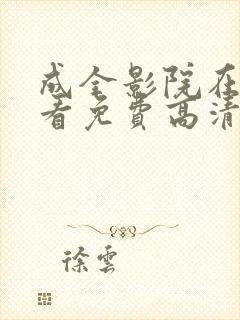 成全影院在
看免費高清
徐雲